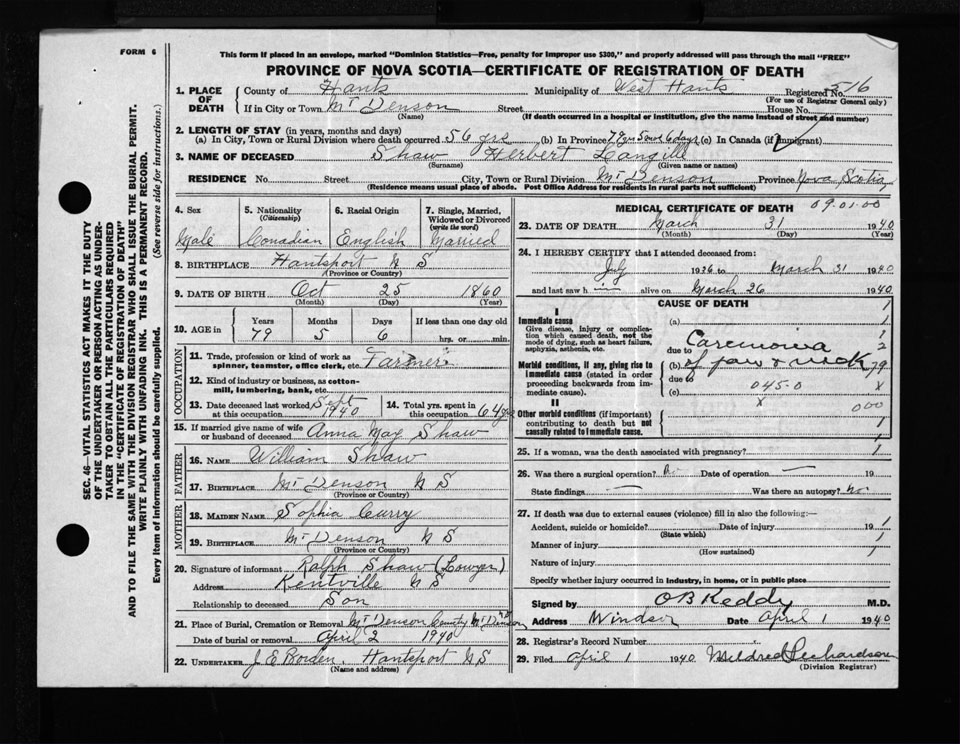 FORM 6
This form if placed in an envelope, marked "Dominion Statistics—Free, penalty for improper use $300," and properly addressed will pass through the mail "FREE"
PROVINCE OF NOVA SCOTIA—CERTIFICATE OF REGISTRATION OF DEATH
1. PLACE OF DEATH County of Hants Municipality of West Hants Registered No. 516
(For use of Registrar General only)
If in City or Town Mt Denson Street House No.
(Name) (If death occurred in a hospital or institution, give the name instead of street and number)
2. LENGTH OF STAY (in years, months and days)
(a) In City, Town or Rural Division where death occurred 56 yrs (b) In Province 79 yrs 5 mos 6 days (c) In Canada (if immigrant)
3. NAME OF DECEASED Shaw Herbert Langille
(Surname) (Given name or names)
RESIDENCE No. Street City, Town or Rural Division Mt Denson Province Nova Scotia
(Residence means usual place of abode. Post Office Address for residents in rural parts not sufficient)
4. Sex 5. Nationality (Citizenship) 6. Racial Origin 7. Single, Married, Widowed or Divorced (write the word)
Male Canadian English Married
8. BIRTHPLACE Hantsport N S
(Province or Country)
9. DATE OF BIRTH Oct 25 1860
(Month) (Day) (Year)
10. AGE in Years Months Days If less than one day old
79 5 6 hrs. or min.
OCCUPATION
11. Trade, profession or kind of work as spinner, teamster, office clerk, etc. Farmer
12. Kind of industry or business, as cotton-mill, lumbering, bank, etc.
13. Date deceased last worked at this occupation Sept 1940 14. Total yrs. spent in this occupation 64 yrs
15. If married give name of wife or husband of deceased Anna May Shaw
FATHER
16. NAME William Shaw
17. BIRTHPLACE Mt Denson N S
(Province or Country)
MOTHER
18. MAIDEN NAME Sophia Curry
19. BIRTHPLACE Mt Denson N S
(Province or Country)
20. Signature of informant Ralph Shaw (Lawyer)
Address Kentville N S
Relationship to deceased Son
21. Place of Burial, Cremation or Removal Mt Denson County Mt Denson
Date of burial or removal April 2 1940
22. UNDERTAKER J E Borden, Hantsport N S
(Name and address)
MEDICAL CERTIFICATE OF DEATH 09.01.00
23. DATE OF DEATH March 31 1940
(Month) (Day) (Year)
24. I HEREBY CERTIFY that I attended deceased from:
July 1936 to March 31 1940
and last saw him alive on March 26 1940
CAUSE OF DEATH
I
Immediate cause
Give disease, injury or complication which caused death, not the mode of dying, such as heart failure, asphyxia, asthenia, etc.
(a)
due to Carcinoma
Morbid conditions, if any, giving rise to immediate cause (stated in order proceeding backwards from immediate cause).
(b) of jaw & neck
due to 045.0
(c) x
II
Other morbid conditions (if important) contributing to death but not causally related to immediate cause.
1
1
2
79
x
000
1
1
25. If a woman, was the death associated with pregnancy? 1
26. Was there a surgical operation? no Date of operation — 19
State findings — Was there an autopsy? no
27. If death was due to external causes (violence) fill in also the following:—
Accident, suicide or homicide? Date of injury 19 1
(State which)
Manner of injury 1
(How sustained)
Nature of injury
Specify whether injury occurred in industry, in home, or in public place
Signed by O B Keddy M.D.
Address Windsor Date April 1 1940
28. Registrar's Record Number
29. Filed April 1 1940 Mildred
(Division Registrar)
SEC. 46—VITAL STATISTICS ACT MAKES IT THE DUTY
OF THE UNDERTAKER OR PERSON ACTING AS UNDERTAKER TO OBTAIN ALL THE PARTICULARS REQUIRED
IN THE "CERTIFICATE OF REGISTRATION OF DEATH"
AND TO FILE THE SAME WITH THE DIVISION REGISTRAR WHO SHALL ISSUE THE BURIAL PERMIT.
WRITE PLAINLY WITH UNFADING INK. THIS IS A PERMANENT RECORD.
Every item of information should be carefully supplied. (See reverse side for instructions.)